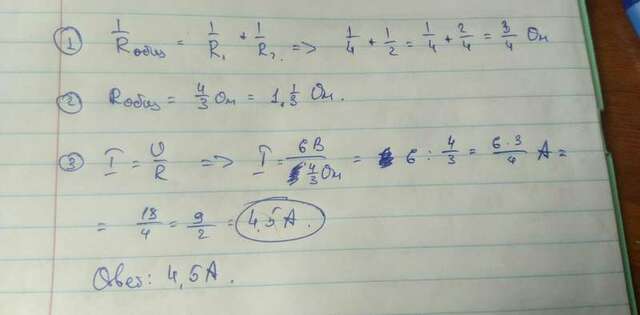 ① 1/Rобщ = 1/R₁ + 1/R₂ => 1/4 + 1/2 = 1/4 + 2/4 = 3/4 Ом
② Rобщ = 4/3 Ом = 1 1/3 Ом.
③ I = U/R => I = 6В / 4/3 Ом = 6 : 4/3 = 6·3/4 А =
= 18/4 = 9/2 = 4,5 А.
Ответ: 4,5А.